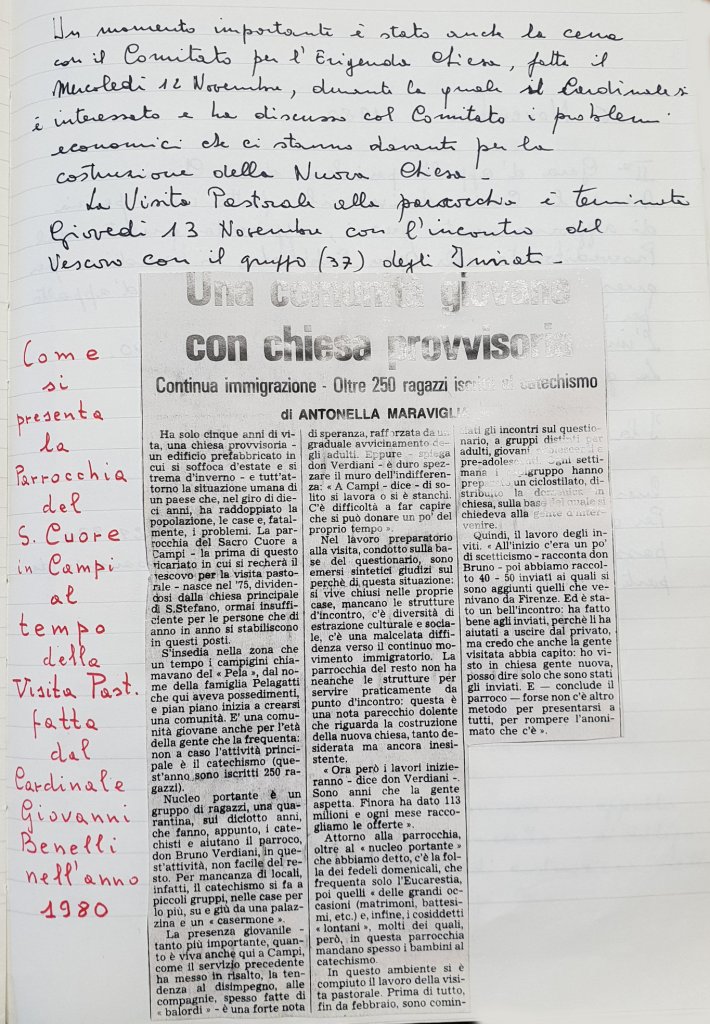 Un momento importante è stato anche la cena
con il Comitato per l'Erigenda Chiesa, fatta il
Mercoledì 12 Novembre, durante la quale il Cardinale si
è interessato e ha discusso col Comitato i problemi
economici che ci stanno davanti per la
costruzione della Nuova Chiesa -
La Visita Pastorale alla parrocchia è terminata
Giovedì 13 Novembre con l'incontro del
Vescovo con il gruppo (37) degli Inviati -
Come
si
presenta
la
Parrocchia
del
S. Cuore
in Campi
al
tempo
della
Visita Past.
fatta
dal
Cardinale
Giovanni
Benelli
nell'anno
1980
Una comunità giovane
con chiesa provvisoria
Continua immigrazione - Oltre 250 ragazzi iscritti al catechismo
di ANTONELLA MARAVIGLIA
Ha solo cinque anni di vi-
ta, una chiesa provvisoria -
un edificio prefabbricato in
cui si soffoca d'estate e si
trema d'inverno - e tutt'at-
torno la situazione umana di
un paese che, nel giro di die-
ci anni, ha raddoppiato la
popolazione, le case e, fatal-
mente, i problemi. La par-
rocchia del Sacro Cuore a
Campi - la prima di questo
vicariato in cui si recherà il
vescovo per la visita pasto-
rale - nasce nel '75, dividen-
dosi dalla chiesa principale
di S.Stefano, ormai insuffi-
ciente per le persone che di
anno in anno si stabiliscono
in questi posti.
S'insedia nella zona che
un tempo i campigini chia-
mavano del « Pela », dal no-
me della famiglia Pelagatti
che qui aveva possedimenti,
e pian piano inizia a crearsi
una comunità. E' una comu-
nità giovane anche per l'età
della gente che la frequenta:
non a caso l'attività princi-
pale è il catechismo (que-
st'anno sono iscritti 250 ra-
gazzi).
Nucleo portante è un
gruppo di ragazzi, una qua-
rantina, sui diciotto anni,
che fanno, appunto, i cate-
chisti e aiutano il parroco,
don Bruno Verdiani, in que-
st'attività, non facile del re-
sto. Per mancanza di locali,
infatti, il catechismo si fa a
piccoli gruppi, nelle case per
lo più, su e giù da una palaz-
zina e un « casermone ».
La presenza giovanile -
tanto più importante, quan-
to è viva anche qui a Campi,
come il servizio precedente
ha messo in risalto, la ten-
denza al disimpegno, alle
compagnie, spesso fatte di
« balordi » - è una forte nota
di speranza, rafforzata da un
graduale avvicinamento de-
gli adulti. Eppure - spiega
don Verdiani - è duro spez-
zare il muro dell'indifferen-
za: « A Campi - dice - di so-
lito si lavora o si è stanchi.
C'è difficoltà a far capire
che si può donare un po' del
proprio tempo ».
Nel lavoro preparatorio
alla visita, condotto sulla ba-
se del questionario, sono
emersi sintetici giudizi sul
perchè di questa situazione:
si vive chiusi nelle proprie
case, mancano le strutture
d'incontro, c'è diversità di
estrazione culturale e socia-
le, c'è una malcelata diffi-
denza verso il continuo mo-
vimento immigratorio. La
parrocchia del resto non ha
neanche le strutture per
servire praticamente da
punto d'incontro: questa è
una nota parecchio dolente
che riguarda la costruzione
della nuova chiesa, tanto de-
siderata ma ancora inesi-
stente.
« Ora però i lavori inizie-
ranno - dice don Verdiani -.
Sono anni che la gente
aspetta. Finora ha dato 113
milioni e ogni mese racco-
gliamo le offerte ».
Attorno alla parrocchia,
oltre al « nucleo portante »
che abbiamo detto, c'è la fol-
la dei fedeli domenicali, che
frequenta solo l'Eucarestia,
poi quelli « delle grandi oc-
casioni (matrimoni, battesi-
mi, etc.) e, infine, i cosiddetti
« lontani », molti dei quali,
però, in questa parrocchia
mandano spesso i bambini al
catechismo.
In questo ambiente si è
compiuto il lavoro della vi-
sita pastorale. Prima di tutto,
fin da febbraio, sono comin-
ciati gli incontri sul questio-
nario, a gruppi distinti per
adulti, giovani
pre-adolescenti. Ogni setti-
mana i gruppo hanno
un ciclostilato, di-
stribuito la domenica in
chiesa, sulla base del quale si
chiedeva alla gente d'inter-
venire.
Quindi, il lavoro degli in-
viti. « All'inizio c'era un po'
di scetticismo - racconta don
Bruno - poi abbiamo raccolto
40 - 50 inviati ai quali si
sono aggiunti quelli che ve-
nivano da Firenze. Ed è sta-
to un bell'incontro: ha fatto
bene agli inviati, perchè li ha
aiutati a uscire dal privato,
ma credo che anche la gente
visitata abbia capito: ho vi-
sto in chiesa gente nuova,
posso dire solo che sono stati
gli inviati. E — conclude il
parroco — forse non c'è altro
metodo per presentarsi a
tutti, per rompere l'anoni-
mato che c'è ».